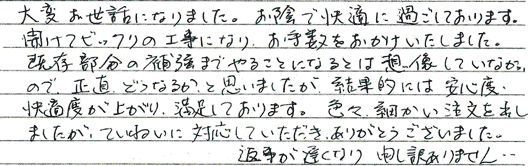 大変お世話になりました。お陰で快適に過ごしております。
開けてビックリの工事になり、お手数をおかけいたしました。
既存部分の補強までやることになるとは想像していなかった
ので、正直、どうなるか、と思いましたが、結果的には安心度・
快適度が上がり、満足しております。色々、細かい注文を出し
ましたが、ていねいに対応していただき、ありがとうございました。
返事が遅くなり申し訳ありません…